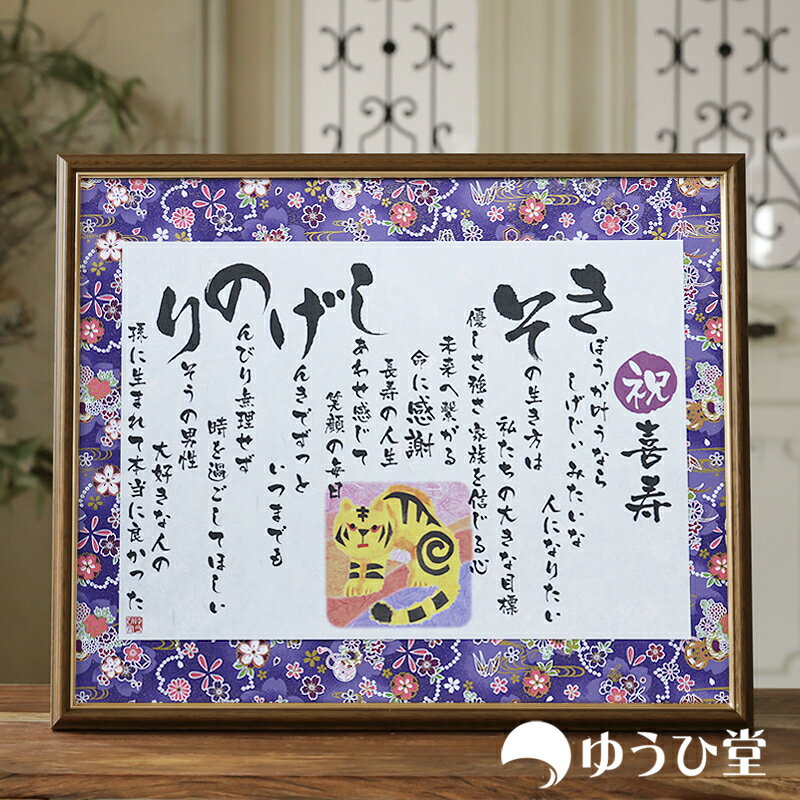 祝 喜寿
きぼうが叶うなら
しげじぃみたいな
人になりたい
その生き方は
私たちの大きな目標
優しさ強さ 家族を信じる心
未来へ繋がる
命に感謝
しあわせ感じて
長寿の人生
笑顔の毎日
げんきでずっと
いつまでも
のんびり無理せず
時を過ごしてほしい
りそうの男性
大好きな人の
孫に生まれて本当に良かった
ゆうひ堂